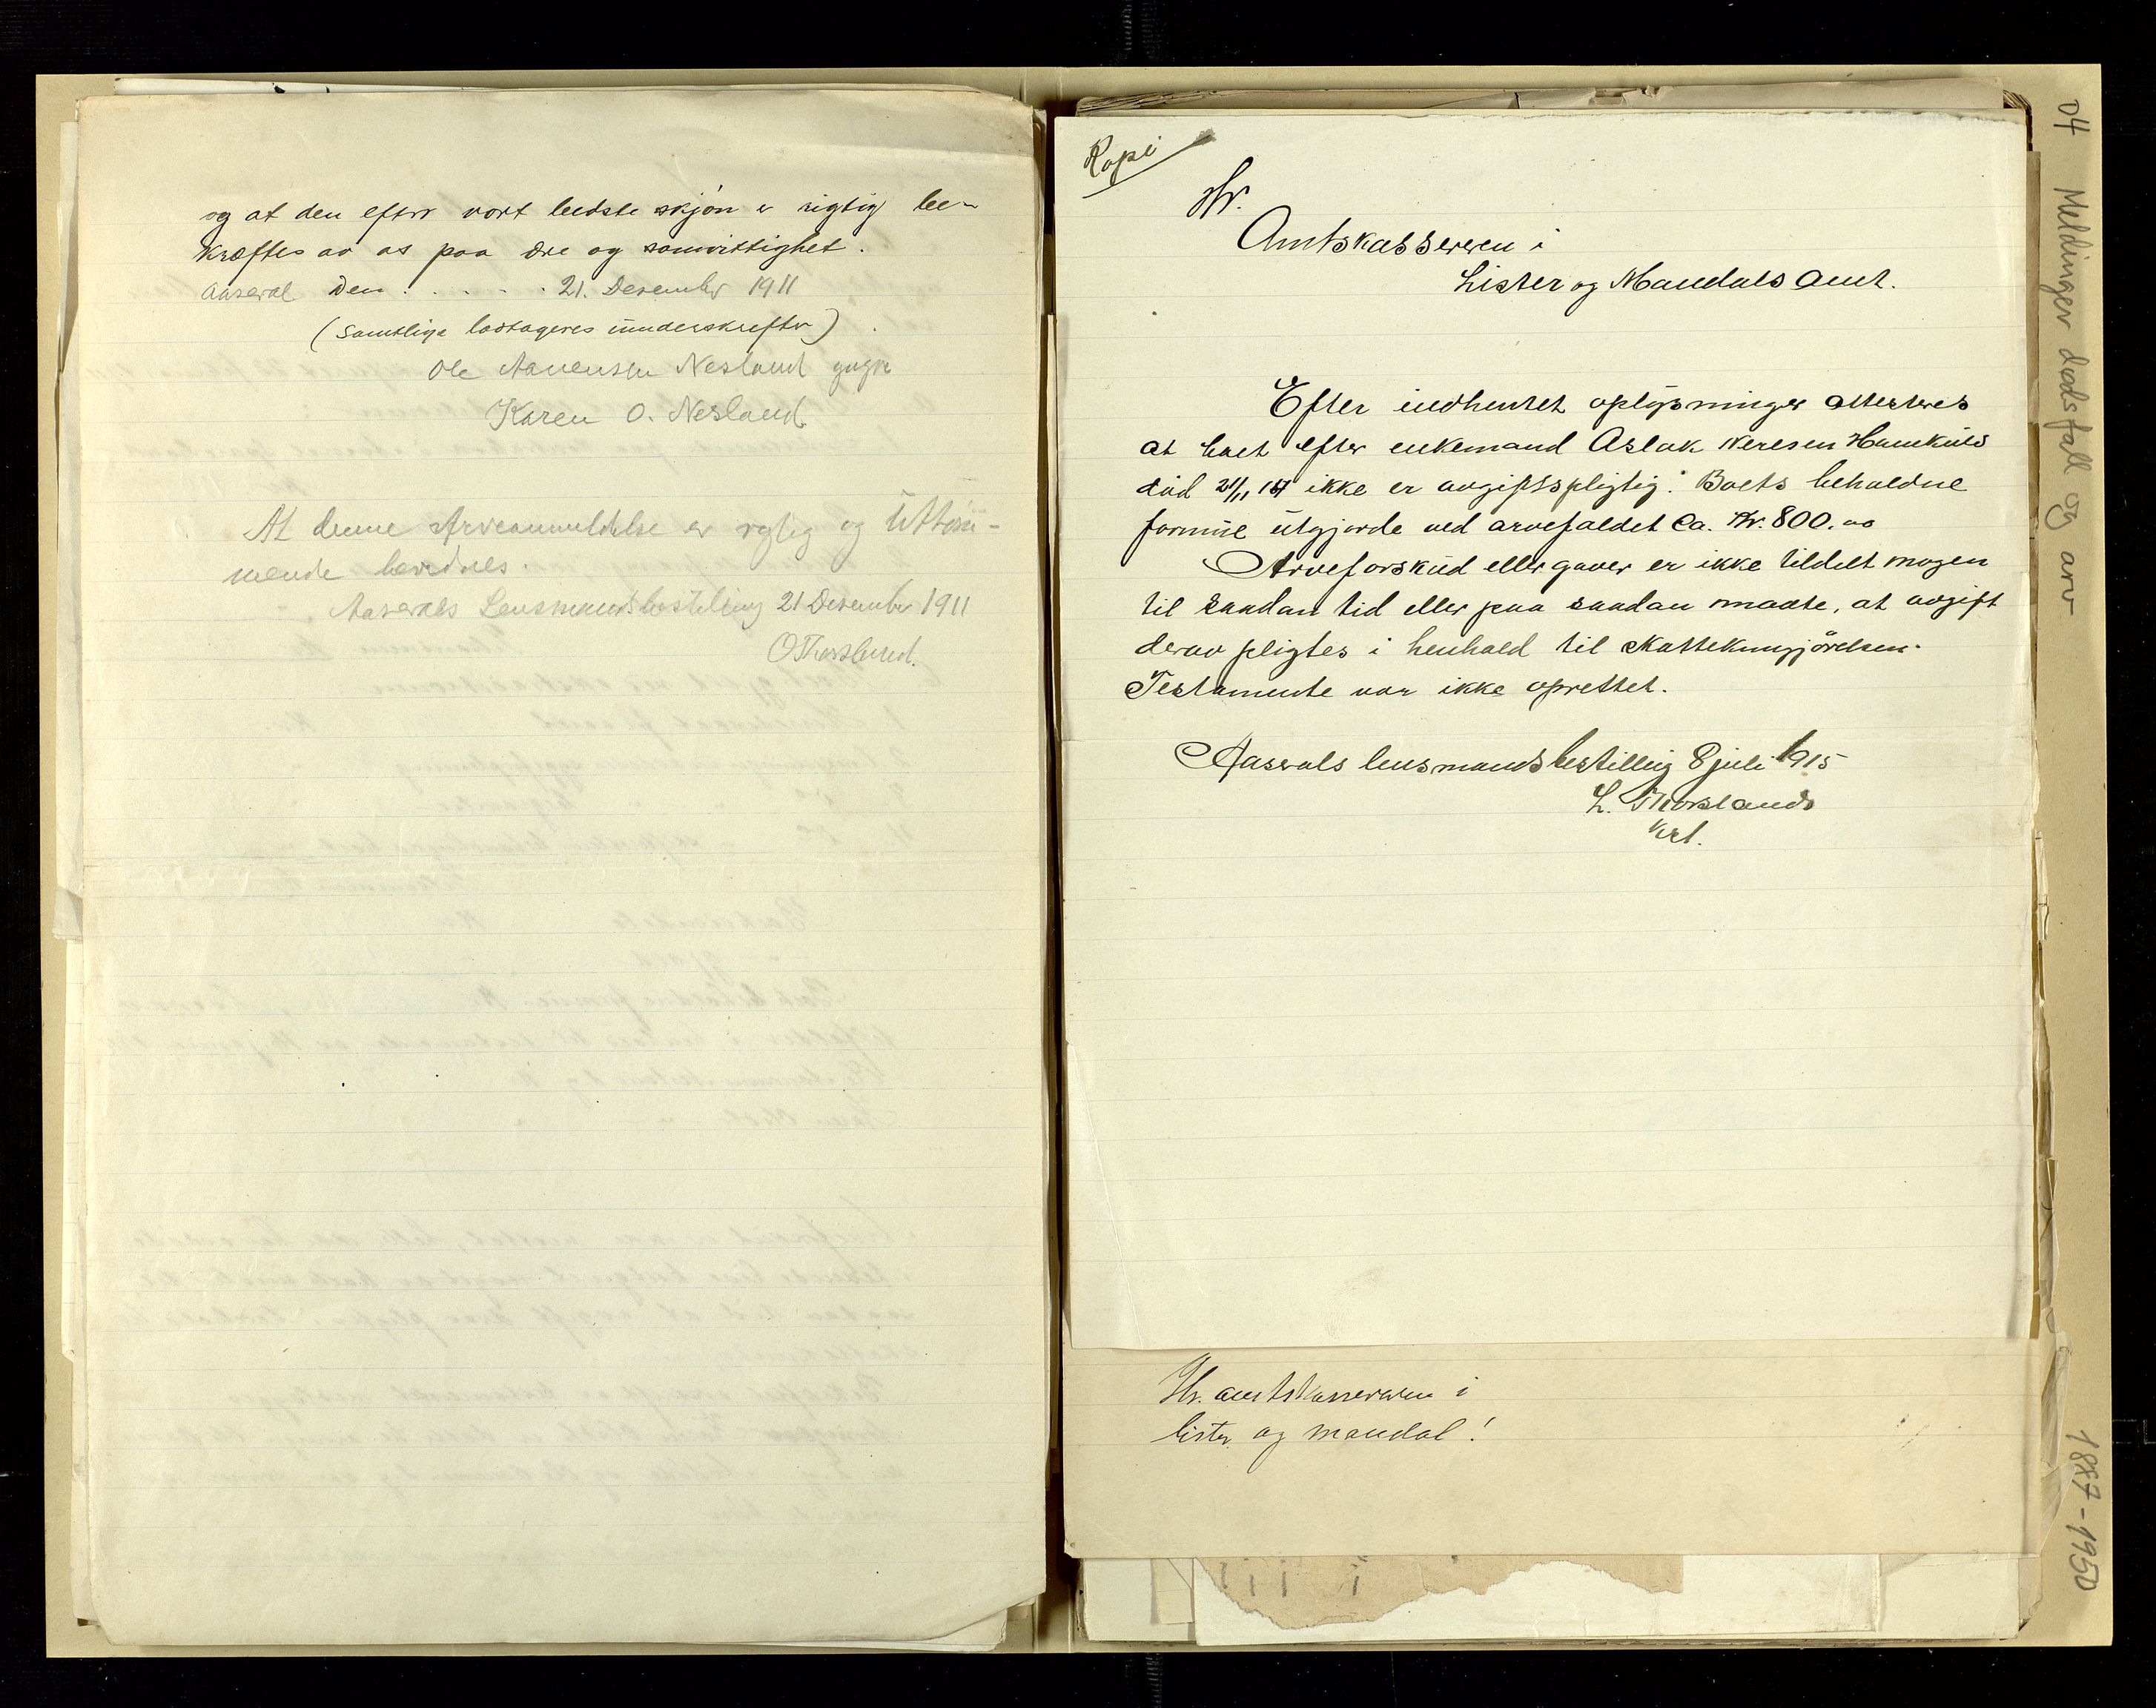 og at den efter vort bedste skjön er rigtig be-
kræftes av os paa ære og samvittighet.
Aaseral den . . . . . 21. Desember 1911
(samtlige lodtageres underskrefter)
Ole Aanensen Nesland
Karen O. Nesland
At denne Arveanmeldelse er rigtig og
bevidnes.
Aaserals Lensmandsbestilling 21 Desember 1911
OThorsland.
Kopi
Hr.
Amtskassereren i
Lister og Mandals Amt.
Efter indhentet oplysninger attesteres
at boet efter enkemand Aslak
död 21/11 ikke er avgiftspligtig. Boets beholdne
formue utgjorde ved arvefaldet Ca. Kr. 800.00
Arveforskud eller gaver er ikke tildelt nogen
til saadan tid eller paa saadan maate, at avgift
derav pligtes i henhold til skattekungjörelsen.
Testamente var ikke oprettet.
Aaserals lensmandsbestilling 8 juli 1915
L. Thorsland
Hr. amtskassereren i
lister og mandal!
04 Meldinger dødsfall og arv 1857-1950